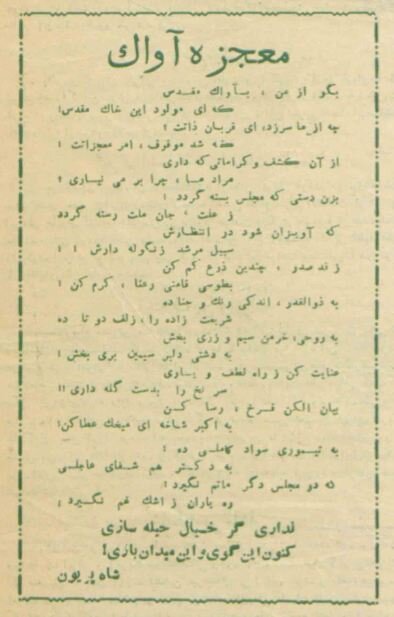 معجزه آواك
بگو از من ، بـآواك مقـدس
كه ای مولود این خاك مقدس!
چه از ما سر زد، ای قربان ذاتت ؛
كـه شد موقوف ، امر معجزاتت ؛
از آن كشف و كراماتی كه داری
مراد مـا ، چرا بر می نیـاری ؟
بزن دستی كه مجلس بسته گردد ؛
ز علت ، جان ملت رسته گردد
كه آویـزان شود در انتظـارش
سبیل مرشد زنگوله دارش ! !
ز قد صدر ، چندین ذرع كم كن
بطوسی قامتی رعنا ، كرم كن !
به ذوالقدر ، اندكی رنك و جنا ده
شریعت زاده را ، زلف دو تا ده
به روحی، خرمن سیم و زری بخش
به دشتی دلبر سیمین بری بخش !
عنایت كن ز راه لطف و یـاری
سر نخ را بدست گله داری !!
بیان الكن فـرخ ، رسا كـن
به اكبر شاخه ای میخك عطا كن!
به تیـموری سواد كاملـی ده ؛
به دكـتر هم شـفای عاجلـی
كه دو مجلس دگر ماتم نگیرد ؛
ره یاران ز اشك غم نگـیرد ؛
نداری گر خیـال حیله سازی
كنون این گوی و این میدان بازی!
شاه پریون